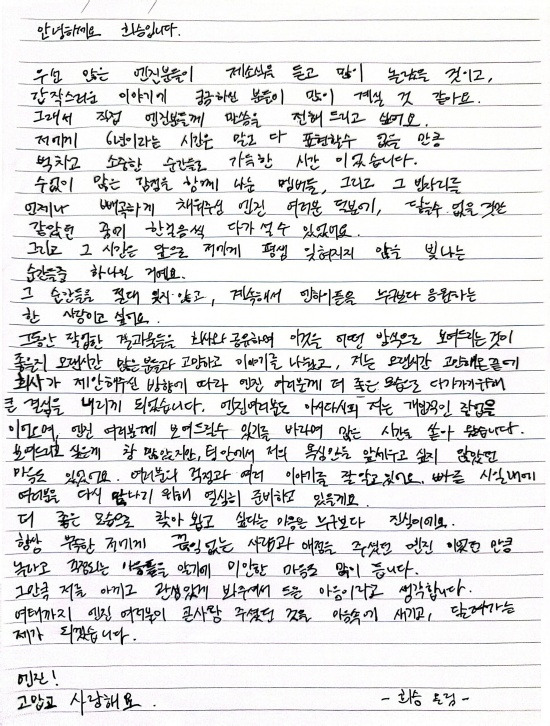 안녕하세요 희승입니다.
우선 많은 엔진분들이 제소식을 듣고 많이 놀랐을 것이고,
갑작스러운 이야기에 궁금하신 분들이 많이 계실 것 같아요.
그래서 직접 엔진분들께 말씀을 전해 드리고 싶어요.
저에게 6년이라는 시간은 말로 다 표현할수 없을 만큼
벅차고 소중한 순간들로 가득한 시간 이었습니다.
수없이 많은 감정을 함께 나눈 멤버들, 그리고 그 빈자리를
언제나 빼곡하게 채워주신 엔진 여러분 덕분에, 닿을수 없을 것만
같았던 꿈에 한걸음씩 다가 설 수 있었어요.
그리고 그 시간은 앞으로 저에게 평생 잊혀지지 않을 빛나는
순간들중 하나일 거에요.
그 순간들을 절대 잊지 않고, 계속해서 엔하이픈을 누구보다 응원하는
한 사람이고 싶어요.
그동안 작업한 결과물들을 회사와 공유하며 이것을 어떤 방식으로 보여드리는 것이
좋을지 오랜시간 많은 분들과 고민하고 이야기를 나눴고, 저는 오랜시간 고민해온 끝에
회사가 제안해주신 방향에 따라 엔진 여러분께 더 좋은 모습으로 다가가기위해
큰 결심을 내리게 되었습니다. 엔진여러분도 아시다시피 저는 개인적인 작업을
이어오며, 엔진 여러분께 보여드릴수 있기를 바라며 많은 시간을 쏟아 왔습니다.
보여드리고 싶은게 참 많았지만, 팀 안에서 저의 욕심만을 앞세우고 싶지 않았던
마음도 있었어요. 여러분의 걱정과 여러 이야기를 잘 알고 있어요. 빠른 시일내에
여러분을 다시 만나기 위해 열심히 준비하고 있을게요.
더 좋은 모습으로 찾아 뵙고 싶다는 마음은 누구보다 진심이에요.
항상 부족한 저에게 끊임없는 사랑과 애정을 주셨던 엔진 이었던 만큼
놀라고 걱정되는 마음들을 알기에 미안한 마음도 많이 듭니다.
그만큼 저를 아끼고 관심있게 봐주셔서 드는 마음이라고 생각합니다.
여태까지 엔진 여러분이 큰사랑 주셨던 것을 마음속에 새기고, 달려가는
제가 되겠습니다.
엔진!
고맙고 사랑해요. - 희승 올림 -